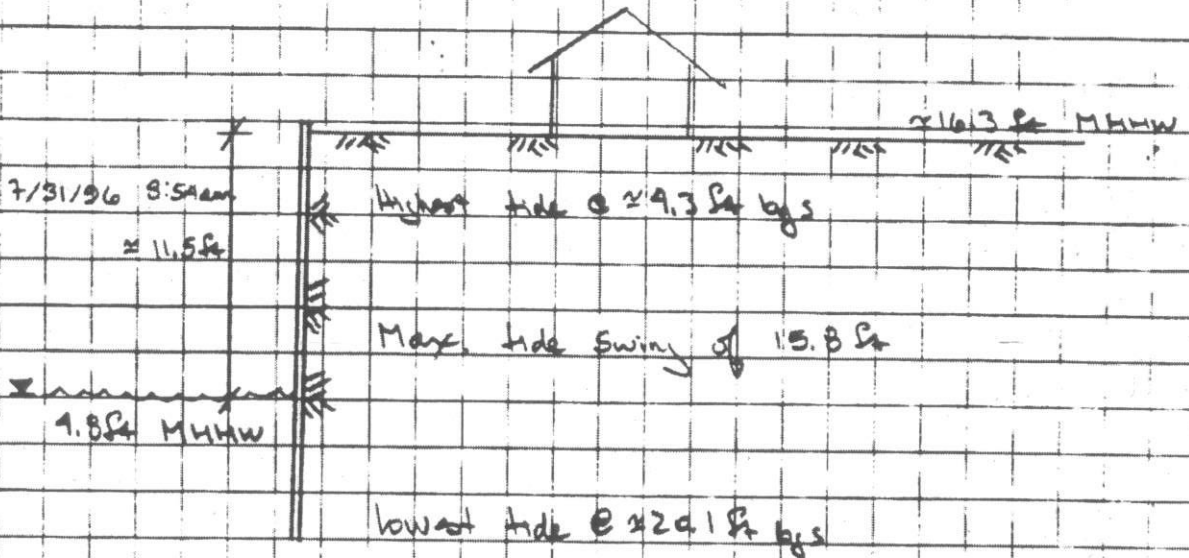 ≈16.3 ft MHHW
7/31/96 8:54am
≈ 11.5ft
Highest tide @ ≈4.3 ft bgs
Max. tide swing of 15.8 ft
4.8ft MHHW
lowest tide @ ≈20.1 ft bgs